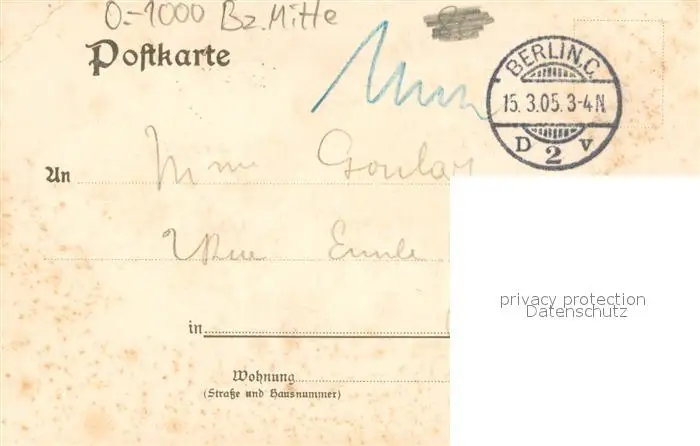 O.-1000 Bz. Mitte
Postkarte
BERLIN.C.
15.3.05.3-4N
D 2 v
An Mme
Rue
in
Wohnung
(Straße und Hausnummer)
privacy protection
Datenschutz